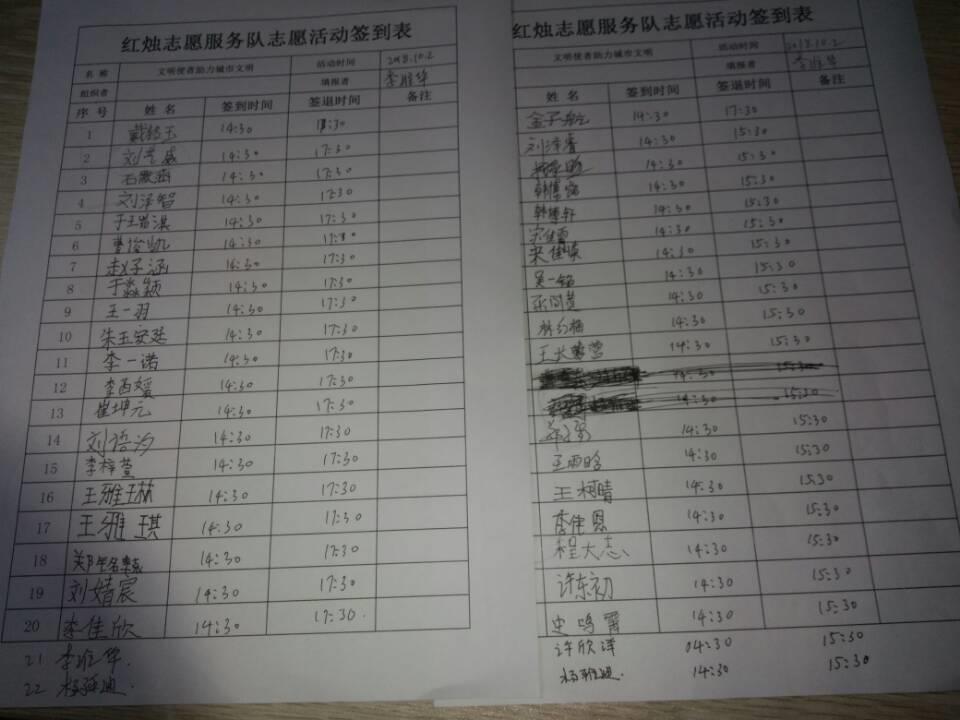 红烛志愿服务队志愿活动签到表
名称 文明使者助力城市文明 活动时间 2018.10.2
组织者 填报者 李胜华
序号 姓名 签到时间 签退时间 备注
1 14:30 18:30
2 14:30 17:30
3 14:30 17:30
4 刘泽智 14:30 17:30
5 14:30 17:30
6 曹俊凯 14:30 17:30
7 赵子涵 14:30 17:30
8 于淼颖 14:30 17:30
9 王一羽 14:30 17:30
10 朱王安廷 14:30 17:30
11 李一诺 14:30 17:30
12 14:30 17:30
13 崔坤元 14:30 17:30
14 刘语汐 14:30 17:30
15 李梓萱 14:30 17:30
16 王雅琳 14:30 17:30
17 王雅琪 14:30 17:30
18 14:30 17:30
19 刘婧宸 14:30 17:30
20 李佳欣 14:30 17:30
21 李胜华
22
红烛志愿服务队志愿活动签到表
文明使者助力城市文明 活动时间 2018.10.2
填报者 李胜华
姓名 签到时间 签退时间 备注
金子航 14:30 17:30
刘泽睿 14:30 15:30
14:30 15:30
14:30 15:30
韩博轩 14:30 15:30
宋佳 14:30 15:30
宋佳 14:30 15:30
吴一铭 14:30 15:30
14:30 15:30
14:30 15:30
王大 14:30 15:30
14:30 15:30
14:30 15:30
14:30 15:30
王雨晗 14:30 15:30
王柯晴 14:30 15:30
李伟恩 14:30 15:30
程大志 14:30 15:30
许东初 14:30 15:30
史鸣 14:30 15:30
许欣洋 04:30 15:30
14:30 15:30